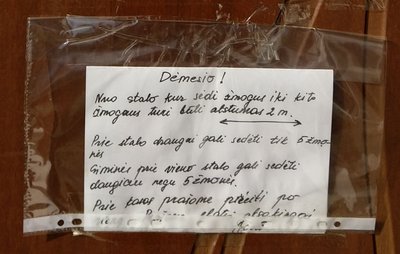 Dėmesio!
Nuo stalo kur sėdi žmogus iki kito
žmogaus turi būti atstumas 2 m.
Prie stalo draugai gali sedėti tik 5 žmo-
nės
Giminės prie vieno stalo gali sedėti
daugiau negu 5 žmonės.
Prie kasos prašome prieiti po